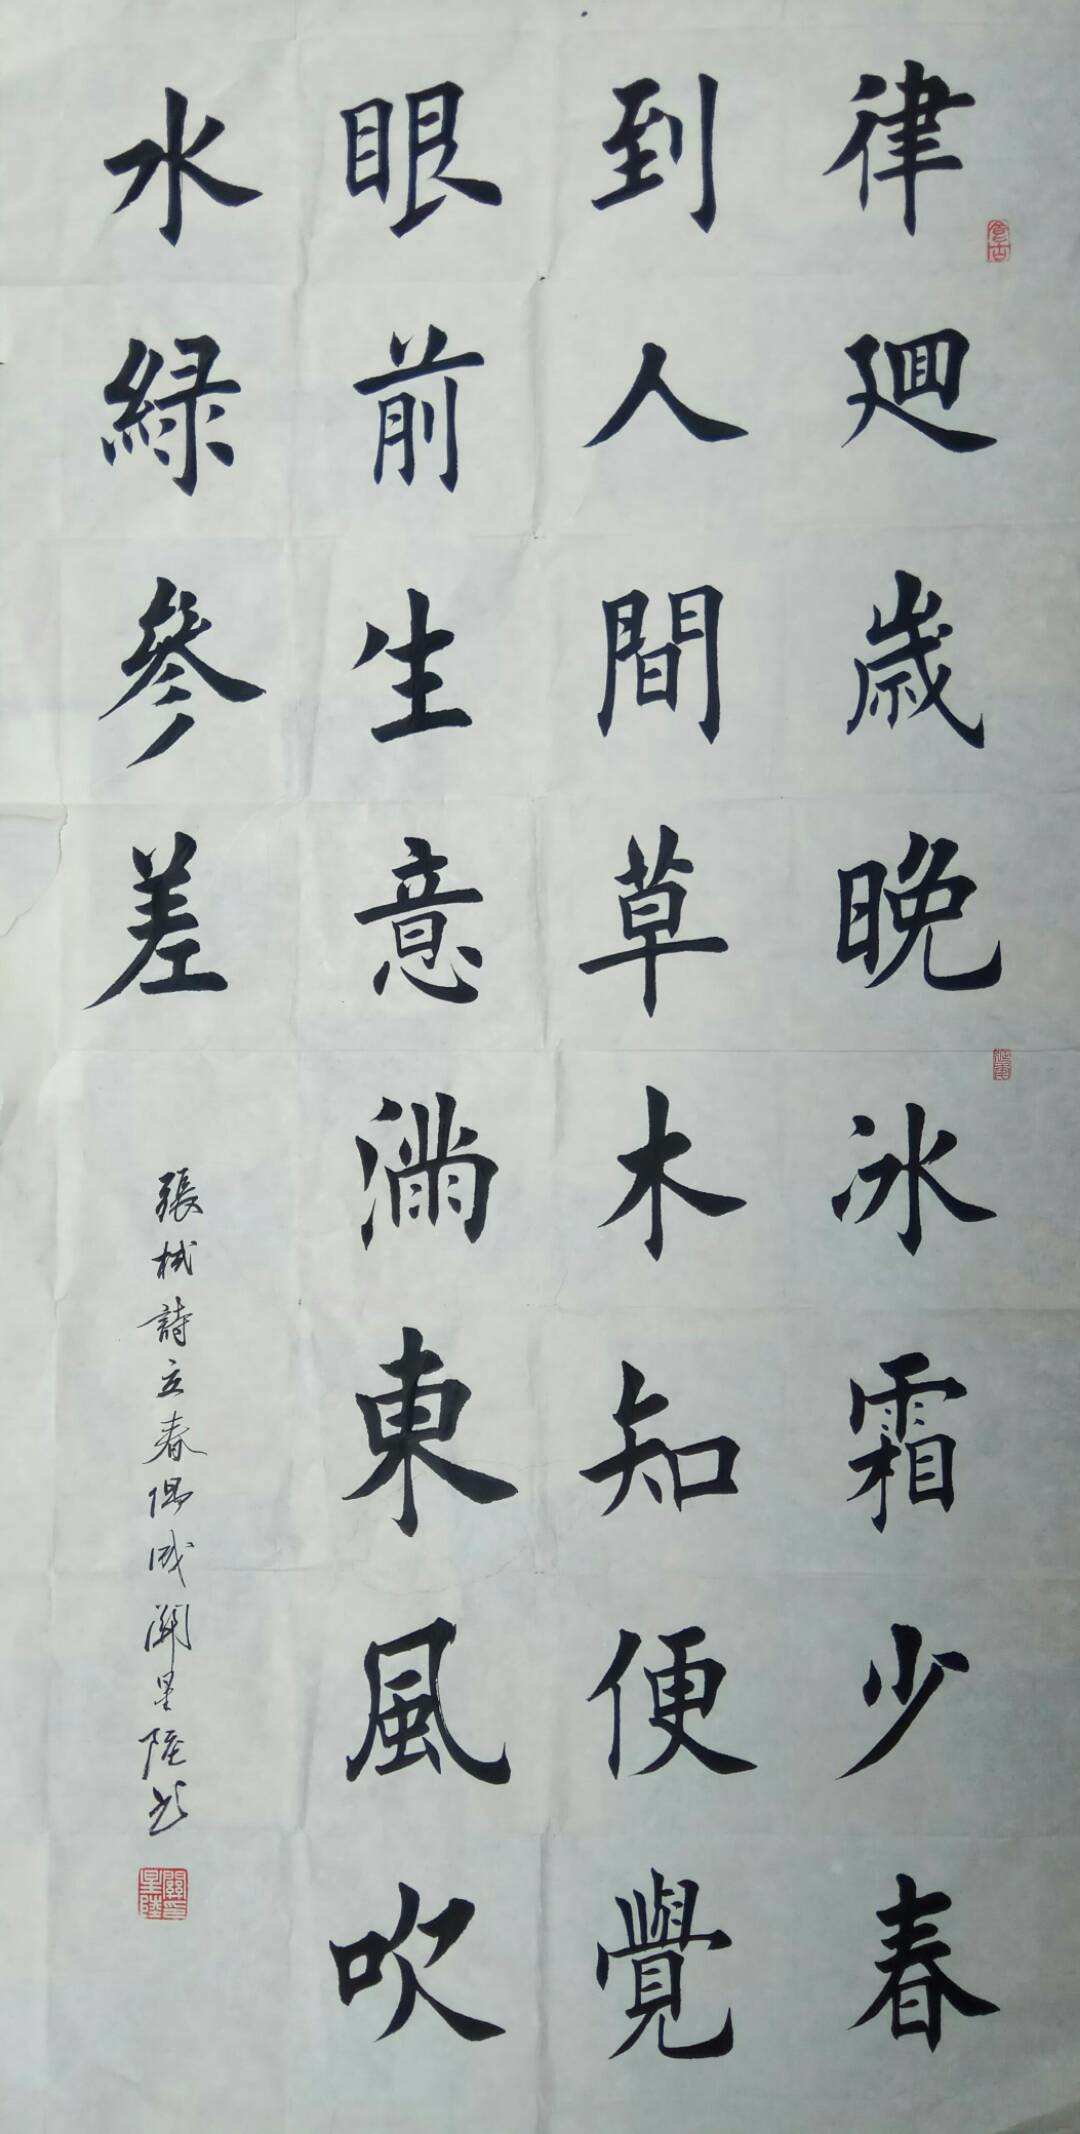 律廻歲晚冰霜少春
到人間草木知便覺
眼前生意滿東風吹
水綠參差
張栻詩立春偶成關星陸書
關印星陸